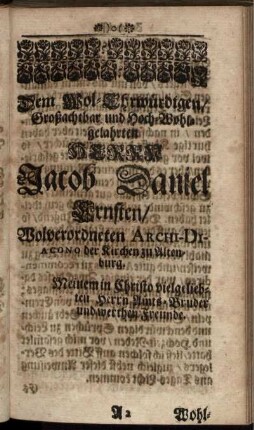 Dem Wol-Ehrwürdigen/
Großachtbar und Hoch-Wohl-
gelahrten
HERRN
Jacob Daniel
Ernsten/
Wolverordneten ARCHI-DI-
ACONO der Kirchen zu Alten-
burg.
Meinem in Christo vielgelieb-
ten Herrn Amts-Bruder
und werthen Freunde.
A 2 Wohl-